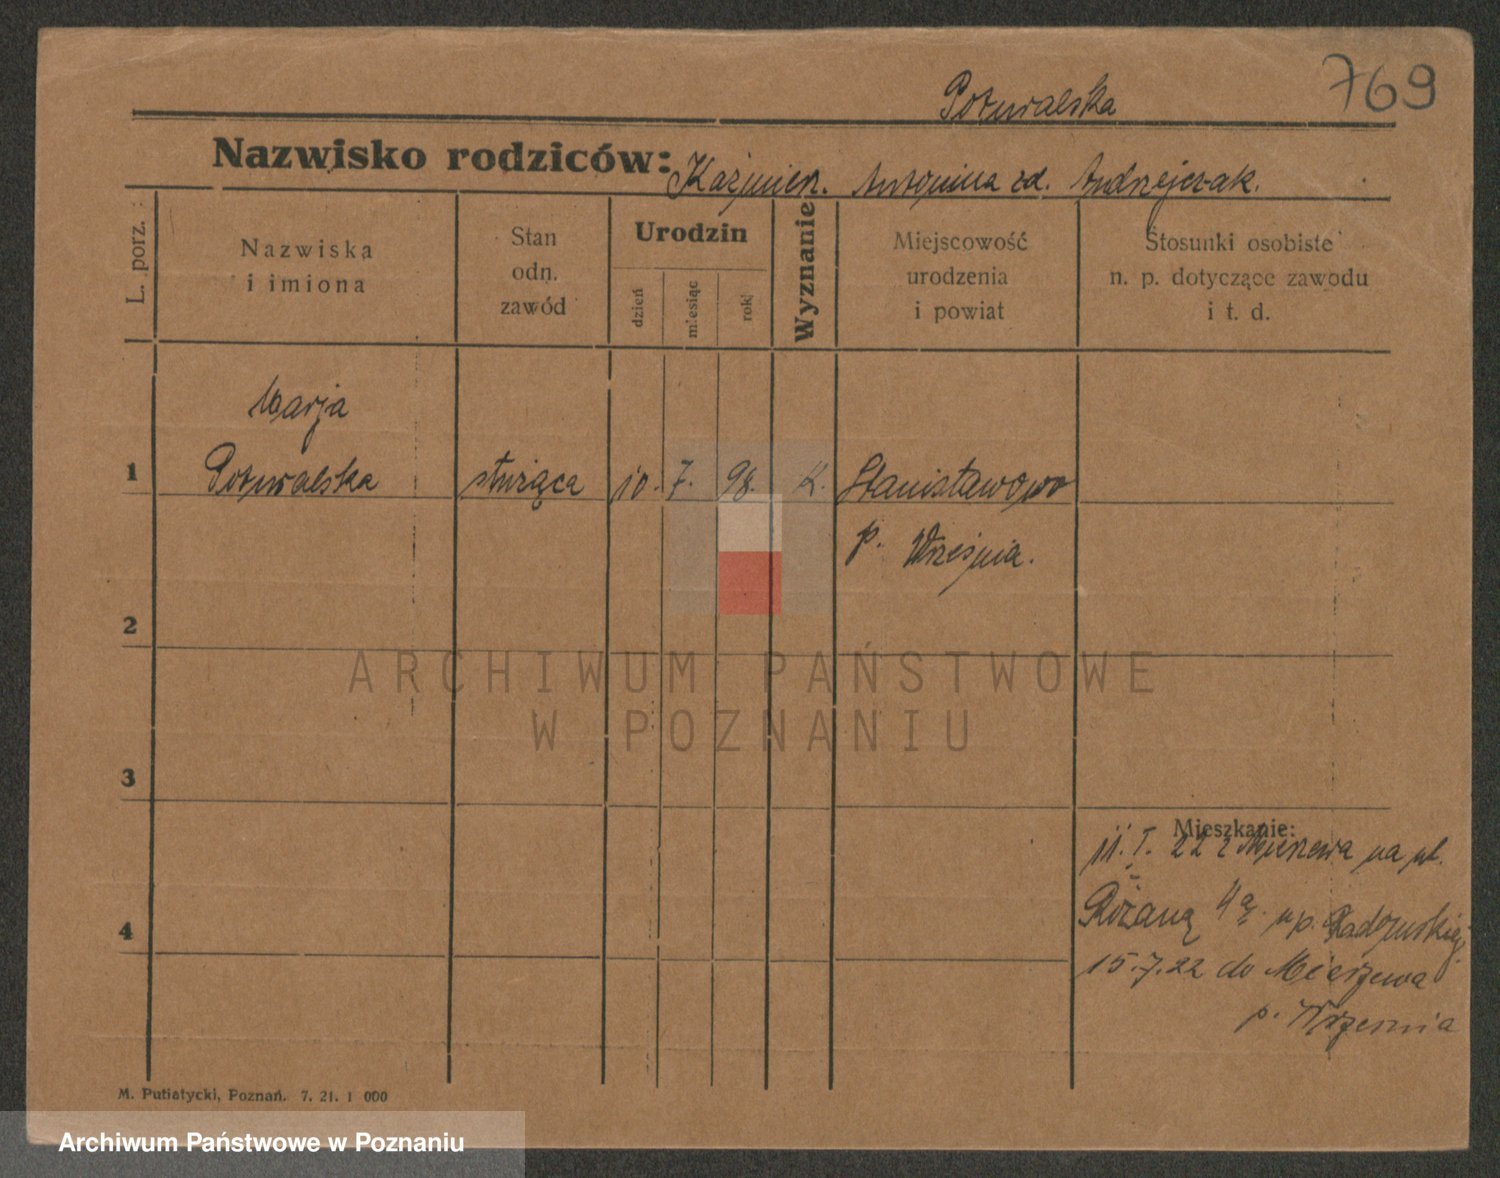 769
Poturalska
Nazwisko rodziców: Kaźmierz. Antonina zd. Andrzejczak.
L. porz.
Nazwiska
i imiona
Stan
odn.
zawód
Urodzin
dzień
miesiąc
rok
Wyznanie
Miejscowość
urodzenia
i powiat
Stosunki osobiste
n. p. dotyczące zawodu
i t. d.
Marja
1 Poturalska służąca 10. 7. 98. K. Stanisławowo
p. Września.
2
ARCHIWUM PAŃSTWOWE
W POZNANIU
3
Mieszkanie:
11.I.22 z Mierzewa na ul.
Różaną 4a. u p. Radomskiej
4
15.7.22 do Mierzewa
p. Wrzesnia
M. Putiatycki, Poznań. 7. 21. 1 000
Archiwum Państwowe w Poznaniu